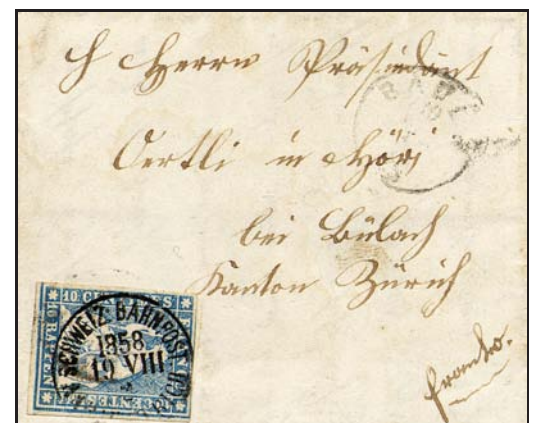 H Herrn Präsident
Oertli in Höri
bei Bülach
Kanton Zürich
franko.
BADE
10 CENTIMES
10 RAPPEN
CENTESIMI
SCHWEIZ. BAHNPOST
1858
19 VIII